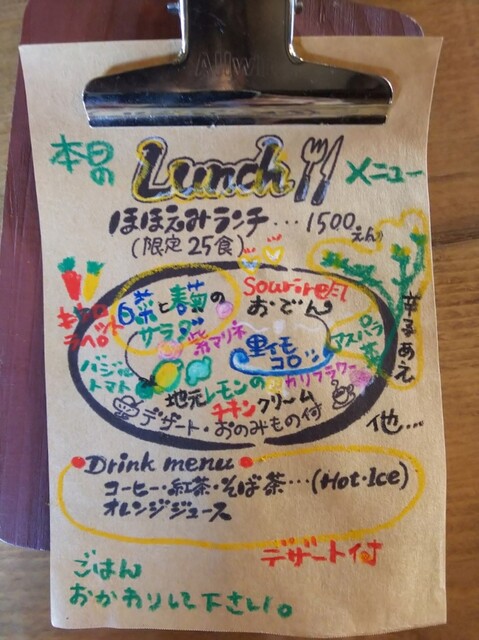 本日の Lunch メニュー
ほほえみランチ…1500えん
(限定25食)
キャロ
ラペ
白菜と春菊の
サラダ
Sourire風
おでん
紫マリネ
里イモ
コロッ
アスパラ
菜
辛子あえ
バジル
トマト
カリフラワー
地元レモンの
チキンクリーム
デザート・おのみもの付
他…
Drink menu
コーヒー・紅茶・そば茶…(Hot・Ice)
オレンジジュース
デザート付
ごはん
おかわりして下さい。